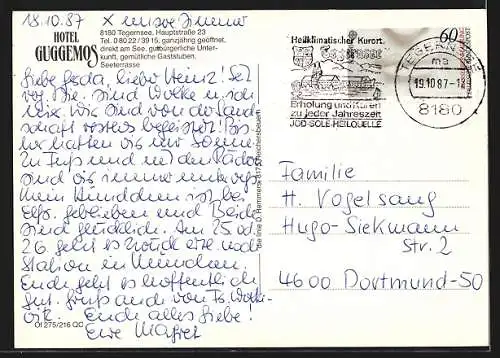 18.10.87 x unsre Zimmer
HOTEL
GUGGEMOS
8180 Tegernsee, Hauptstraße 23
Tel. 0 80 22 / 39 15, ganzjährig geöffnet,
direkt am See, gutbürgerliche Unter-
kunft, gemütliche Gaststuben,
Seeterrasse
Liebe Gerda, lieber Heinz! Seit
Wir sind von der Land-
schaft restlos begeistert! Bis-
her hatten wir nur Sonne.
Zu Fuß und mit den Rädern
sind wir immer unterwegs.
Mein Hündchen ist bei
geblieben und Beide
sind glücklich. Am 25. od.
26. geht es zurück
Station in München.
Ende geht es hoffentlich
gut. Gruß auch von
Euch alles Liebe!
Eure
Öl 275/216 QC
Heilklimatischer Kurort
Tegernsee
Erholung und Kuren
zu jeder Jahreszeit
JOD-SOLE-HEILQUELLE
60
TEGERNSEE
ma
19.10.87-12
8180
Familie
H. Vogelsang
Hugo-Siekmann
Str. 2
4600 Dortmund-50